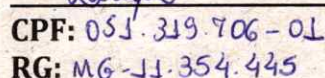 CPF: 051.319.706-01
RG: MG-11.354.445